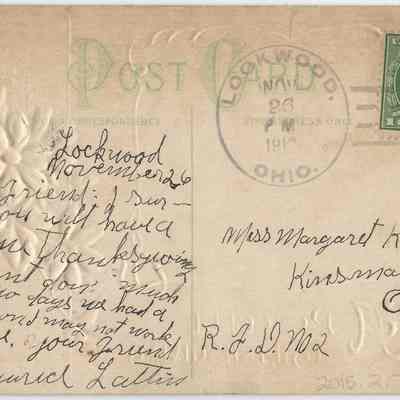 POST CARD
CORRESPONDENCE
LOCKWOOD,
NOV
26
PM
191
OHIO.
Lockwood
November 26
Friend: I sur-
you will have a
Thanksgiving
much
days we had a
and may not work
your Friend
Lattin
Miss Margaret K
Kinsma
O
R.F.D. No 2
2015.2.7